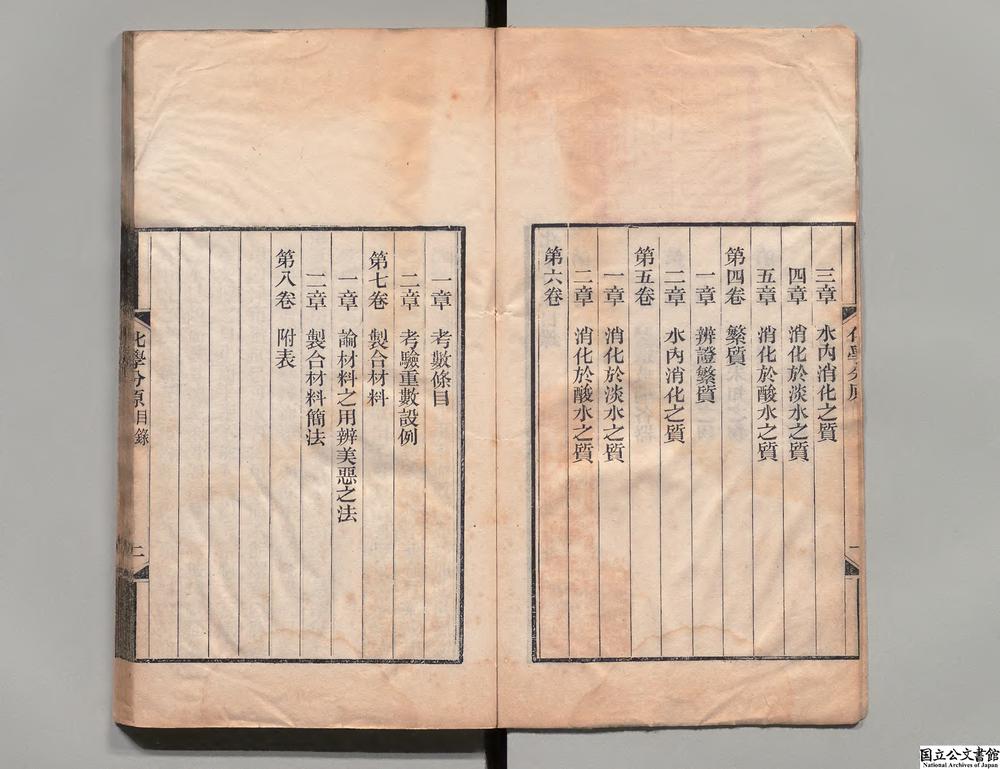 三章 水內消化之質
四章 消化於淡水之質
五章 消化於酸水之質
第四卷 繁質
一章 辨證繁質
二章 水內消化之質
第五卷
一章 消化於淡水之質
二章 消化於酸水之質
第六卷
一章 考數條目
二章 考驗重數設例
第七卷 製合材料
一章 論材料之用辨美惡之法
二章 製合材料簡法
第八卷 附表
化學分原 目錄
二
国立公文書館
National Archives of Japan